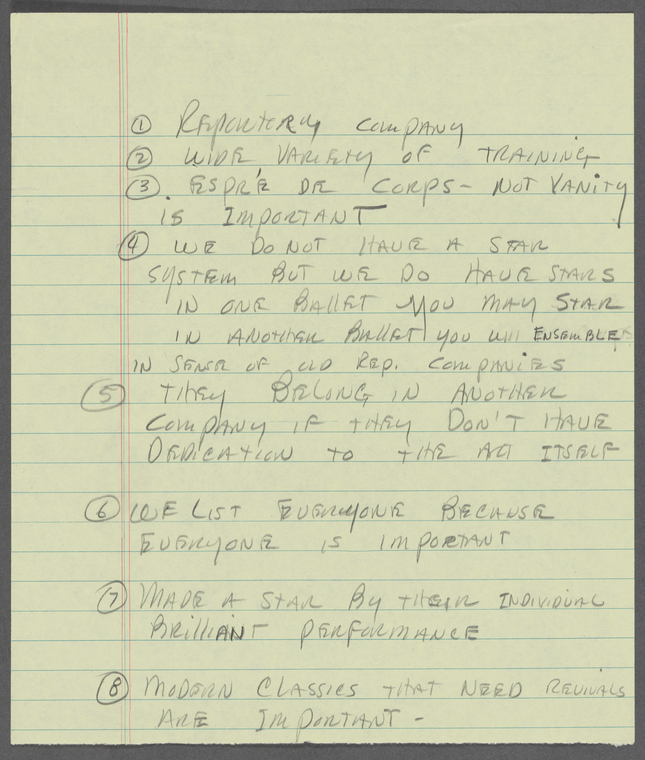 ① Reportory Company
② WIDE VARIETY OF TRAINING
③ . ESPRÉ DE CORPS - NOT VANITY
IS IMPORTANT
④ WE DO NOT HAVE A STAR
SYSTEM BUT WE DO HAVE STARS
IN ONE BALLET YOU MAY STAR
IN ANOTHER BALLET YOU Will ENSEMBLE
IN SENSE OF OLD REP. COMPANIES
⑤ THEY BELONG IN ANOTHER
COMPANY IF THEY DON'T HAVE
DEDICATION TO THE ART ITSELF
⑥ WE LIST EVERYONE BECAUSE
EVERYONE IS IMPORTANT
⑦ MADE A STAR BY THEIR INDIVIDUAL
BRILLIANT PERFORMANCE
⑧ MODERN CLASSICS THAT NEED REVIVALS
ARE IMPORTANT -